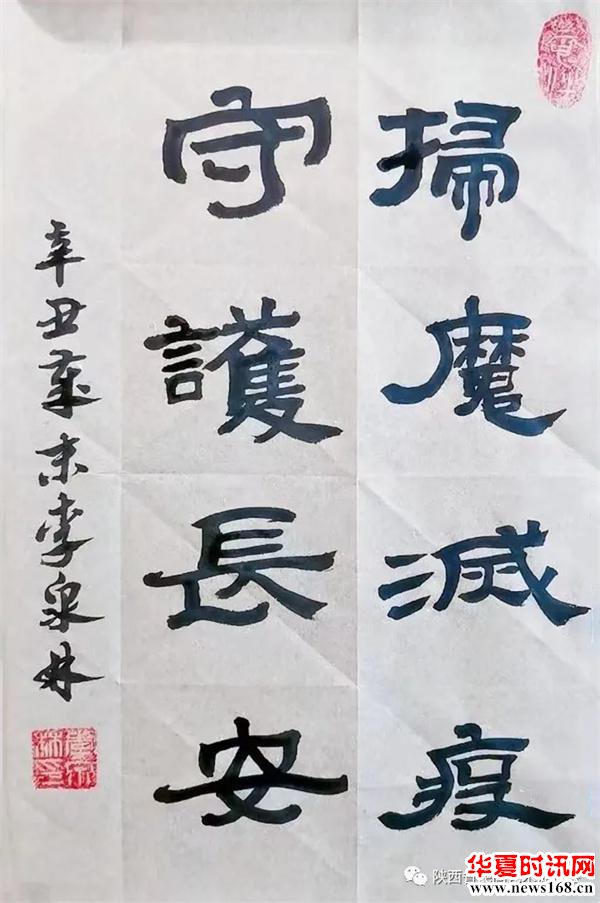 掃魔滅疫
守護長安
辛丑歲末李泉林
陕西
华夏时讯网
www.news168.com